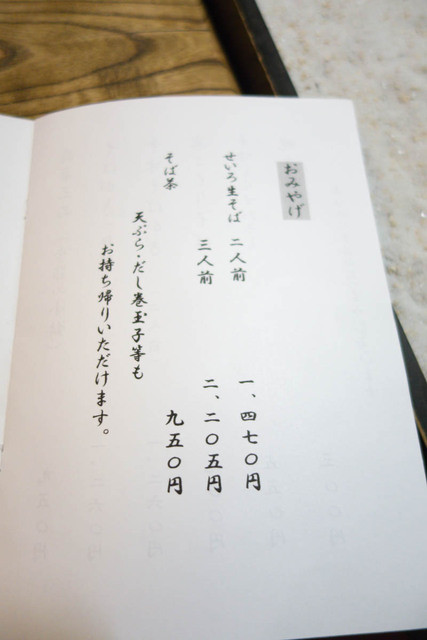 おみやげ
せいろ生そば 二人前 一、四七〇円
三人前 二、二〇五円
そば茶 九五〇円
天ぷら・だし巻玉子等も
お持ち帰りいただけます。